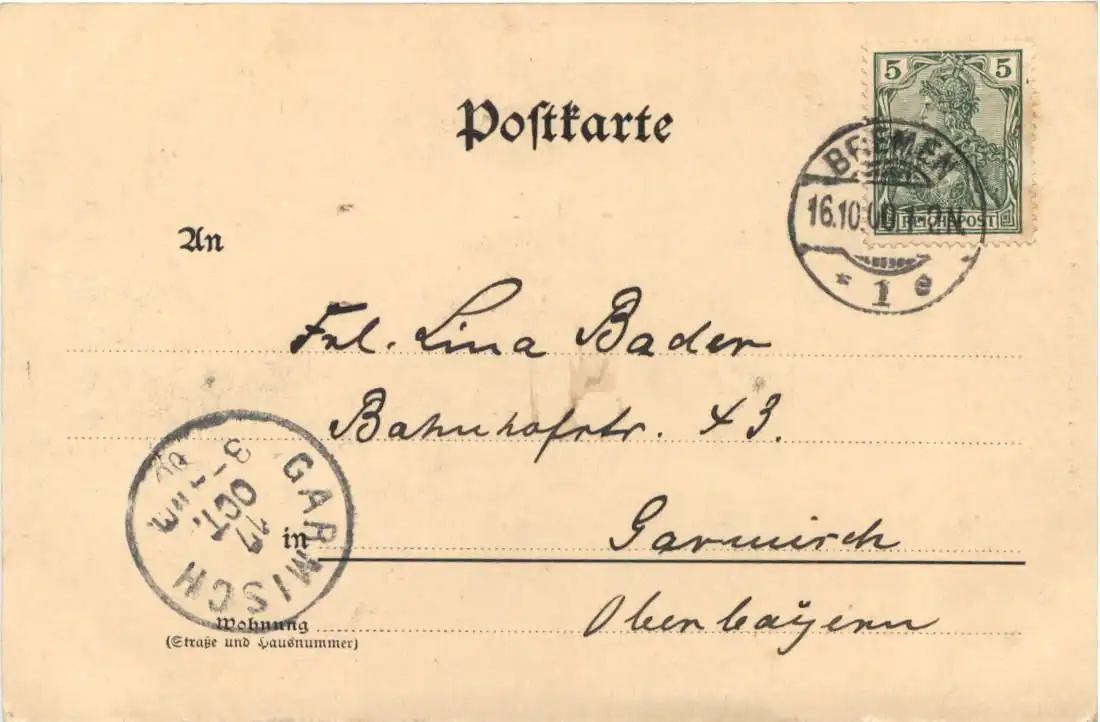 5 5
Poſtkarte
BREMEN
16.10.00 1-2N.
REICHSPOST
* 1 e
An
Frl. Lina Bader
Bahnhofstr. 43.
GARMISCH
17
OCT.
3-
in Garmisch
Oberbayern
Wohnung
(Straße und Hausnummer)